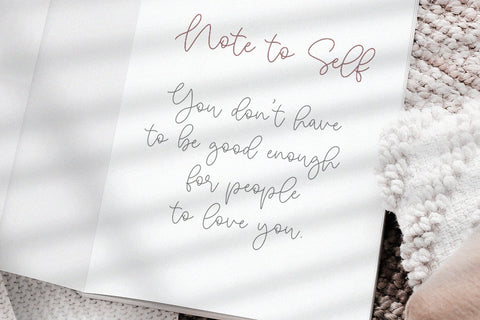 Note to Self
You don't have
to be good enough
for people
to love you.